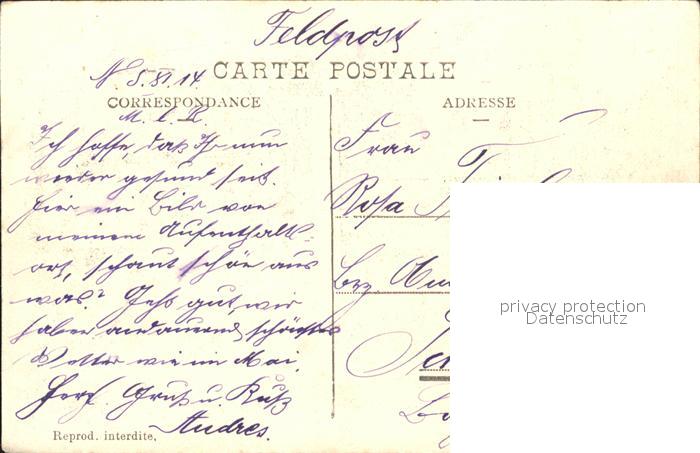 Feldpost
CARTE POSTALE
N. 5. XI. 14
CORRESPONDANCE
ADRESSE
M. l. R.
Ich hoffe, daß Ihr nun
wieder gesund seit.
Hier ein Bild von
meinem Aufenthalts-
ort, schaut schön aus
was? Gehts gut, wir
haben andauernd schönstes
Wetter wie im Mai.
Herzl. Gruß u. Kuß
Andres.
Frau
Rosa
Bez
Reprod. interdite.
privacy protection
Datenschutz